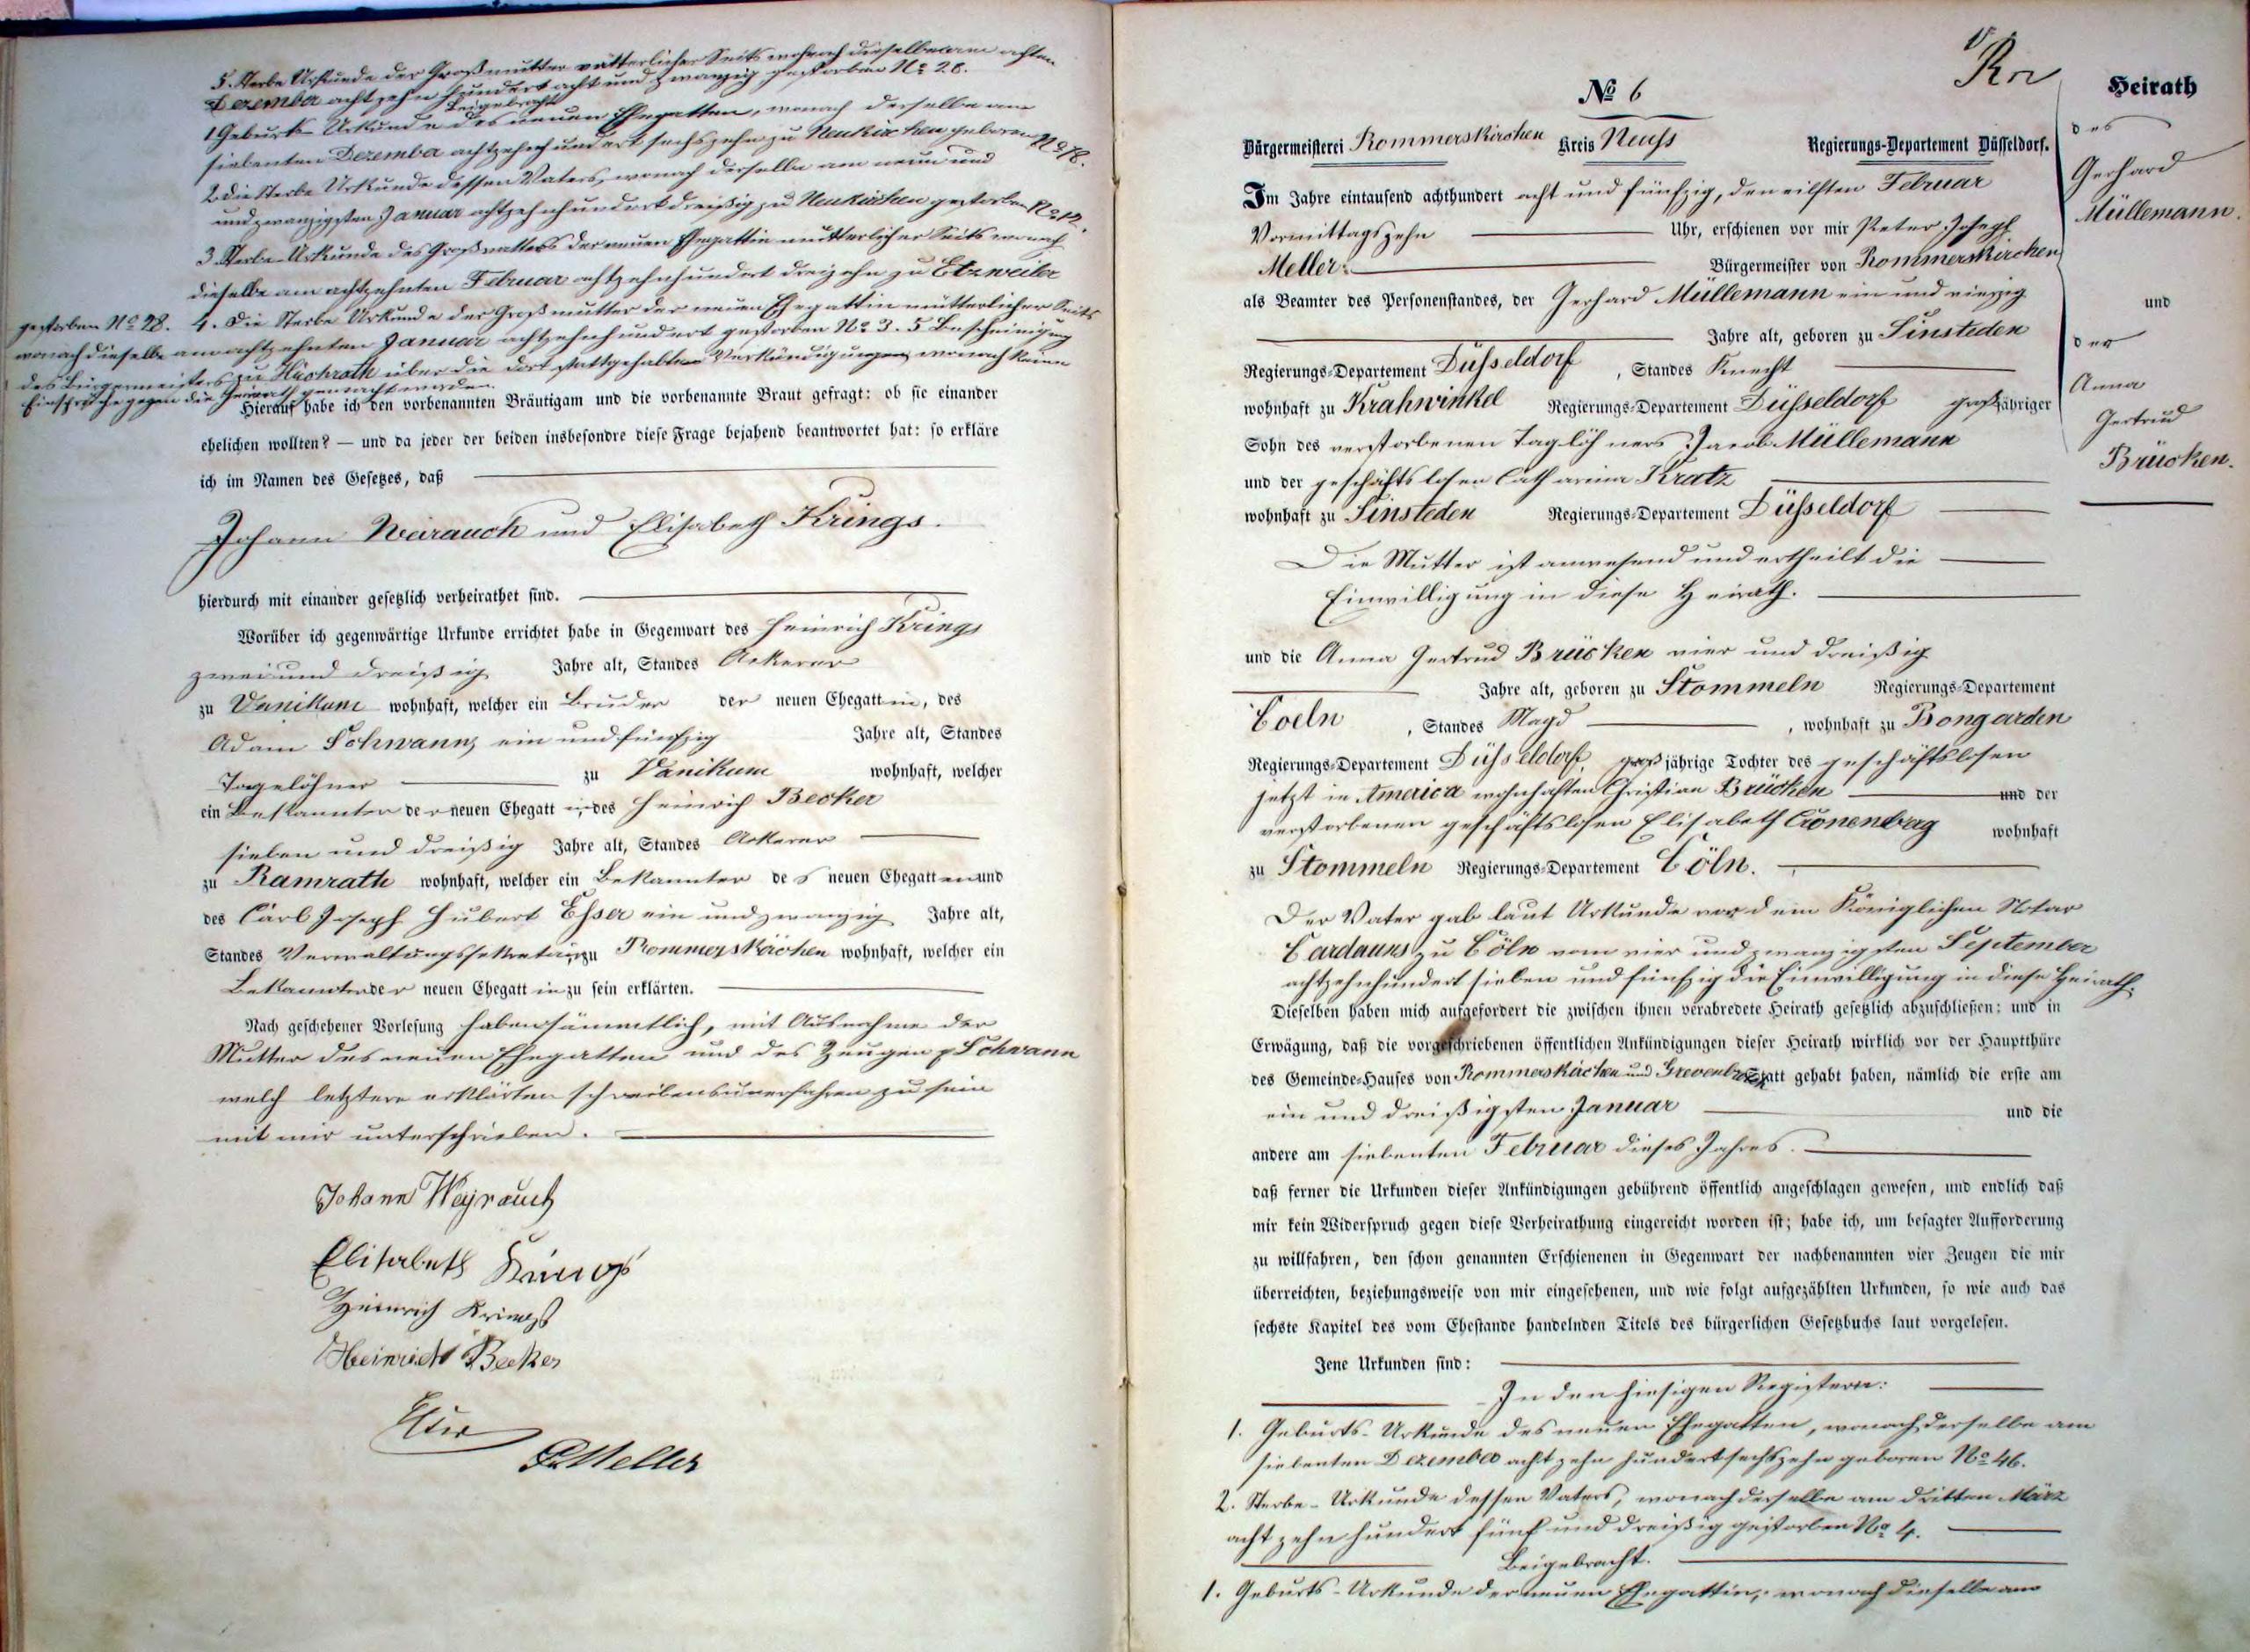 5. Sterbe Urkunde der Großmutter vätterlicher Seits wonach dieselbe am achten
Dezember achtzehn hundert acht und zwanzig gestorben No 28.
Beigebracht
1 Geburts-Urkunde des neuen Ehegatten, wonach derselbe am
siebenten Dezember achtzehnhundert sechszehn zu Neukirchen geboren No 78.
2 die Sterbe Urkunde dessen Vaters, wonach derselbe am neun und
und zwanzigsten Januar achtzehnhundert dreißig zu Neukirchen gestorben No 12.
3 Sterbe-Urkunde des Großvatters der neuen Ehegattin mutterlicher Seits wonach
dieselbe am achtzehnten Februar achtzehnhundert dreizehn zu Etzweiler
gestorben No 28. 4. Die Sterbe Urkunde der Großmutter der neuen Ehegattin mütterlicher Seits
wonach dieselbe am achtzehnten Januar achtzehnhundert gestorben No 3. 5 Bescheinigung
des Bürgermeisters zu Hüchrath über die dort stattgehabten Verkündigungen wonach keine
Einsprüche gegen die Heirath gemacht worden.
Hierauf habe ich den vorbenannten Bräutigam und die vorbenannte Braut gefragt: ob sie einander
ehelichen wollten? — und da jeder der beiden insbesondre diese Frage bejahend beantwortet hat: so erkläre
ich im Namen des Gesetzes, daß
Johann Weirauch und Elisabeth Krings.
hierdurch mit einander gesetzlich verheirathet sind.
Worüber ich gegenwärtige Urkunde errichtet habe in Gegenwart des Heinrich Krings
zwei und dreißig Jahre alt, Standes Ackerer
zu Vanikum wohnhaft, welcher ein Bruder der neuen Ehegattin, des
Adam Schwann, ein und fünfzig Jahre alt, Standes
Tagelöhner zu Vanikum wohnhaft, welcher
ein Bekannter der neuen Ehegattin, des Heinrich Becker
sieben und dreißig Jahre alt, Standes Ackerer
zu Ramrath wohnhaft, welcher ein Bekannter des neuen Ehegatten und
des Carl Joseph Hubert Esser ein und zwanzig Jahre alt,
Standes Verwaltungssekretair, zu Rommerskirchen wohnhaft, welcher ein
Bekannter der neuen Ehegattin zu sein erklärten.
Nach geschehener Vorlesung haben sämmtlich, mit Ausnahme der
Mutter des neuen Ehegatten und des Zeugen p Schwann
welch letztere erklärten schreibensunerfahren zu sein
mit mir unterschrieben.
Johann Weyrauch
Elisabeth Krings
Heinrich Krings
Heinrich Becker
Esser
P. Meller
No 6
Bürgermeisterei Rommerskirchen Kreis Neuss Regierungs-Departement Düsseldorf.
Im Jahre eintausend achthundert acht und fünfzig, den eilften Februar
Vormittags zehn Uhr, erschienen vor mir Peter Joseph
Meller Bürgermeister von Rommerskirchen
als Beamter des Personenstandes, der Gerhard Müllemann ein und vierzig
Jahre alt, geboren zu Sinsteden
Regierungs-Departement Düsseldorf, Standes Knecht
wohnhaft zu Krahwinkel Regierungs-Departement Düsseldorf großjähriger
Sohn des verstorbenen Taglöhners Jacob Müllemann
und der geschäftslosen Catharina Kratz
wohnhaft zu Sinsteden Regierungs-Departement Düsseldorf
Die Mutter ist anwesend und ertheilt die
Einwilligung in diese Heirath.
und die Anna Gertrud Brücken vier und dreißig
Jahre alt, geboren zu Stommeln Regierungs-Departement
Coeln, Standes Magd, wohnhaft zu Bongarden
Regierungs-Departement Düsseldorf, großjährige Tochter des geschäftslosen
jetzt in America wohnhaften Christian Brücken und der
verstorbenen geschäftslosen Elisabeth Cronenbrag wohnhaft
zu Stommeln Regierungs-Departement Cöln.
Der Vater gab laut Urkunde vor dem Königlichen Notar
Cardauns zu Cöln vom vier und zwanzigsten September
achtzehnhundert sieben und fünfzig die Einwilligung in diese Heirath.
Dieselben haben mich aufgefordert die zwischen ihnen verabredete Heirath gesetzlich abzuschließen: und in
Erwägung, daß die vorgeschriebenen öffentlichen Ankündigungen dieser Heirath wirklich vor der Hauptthüre
des Gemeinde-Hauses von Rommerskirchen und Grevenbroich statt gehabt haben, nämlich die erste am
ein und dreißigsten Januar und die
andere am siebenten Februar dieses Jahres.
daß ferner die Urkunden dieser Ankündigungen gebührend öffentlich angeschlagen gewesen, und endlich daß
mir kein Widerspruch gegen diese Verheirathung eingereicht worden ist; habe ich, um besagter Aufforderung
zu willfahren, den schon genannten Erschienenen in Gegenwart der nachbenannten vier Zeugen die mir
überreichten, beziehungsweise von mir eingesehenen, und wie folgt aufgezählten Urkunden, so wie auch das
sechste Kapitel des vom Ehestande handelnden Titels des bürgerlichen Gesetzbuchs laut vorgelesen.
Jene Urkunden sind:
In den hiesigen Registern:
1. Geburts-Urkunde des neuen Ehegatten, wonach derselbe am
siebenten Dezember achtzehn hundert sechszehn geboren No 46.
2. Sterbe-Urkunde dessen Vaters, wonach derselbe am dritten März
achtzehn hundert fünf und dreißig gestorben No 4.
Beigebracht.
1. Geburts-Urkunde der neuen Ehegattin, wonach dieselbe am
Heirath
des
Gerhard
Müllemann.
und
der
Anna
Gertrud
Brücken.